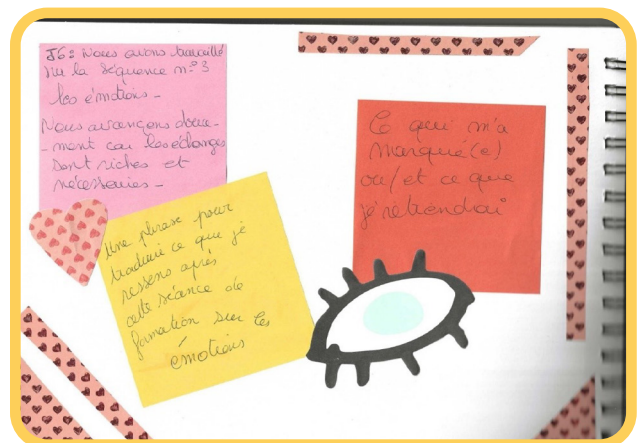 J6: Nous avons travaillé
sur la séquence n°3
les émotions -
Nous avançons douce-
-ment car les échanges
sont riches et
nécessaires -
Une phrase pour
traduire ce que je
ressens après
cette séance de
formation sur les
émotions
Ce qui m'a
marqué(e)
ou/et ce que
je retiendrai